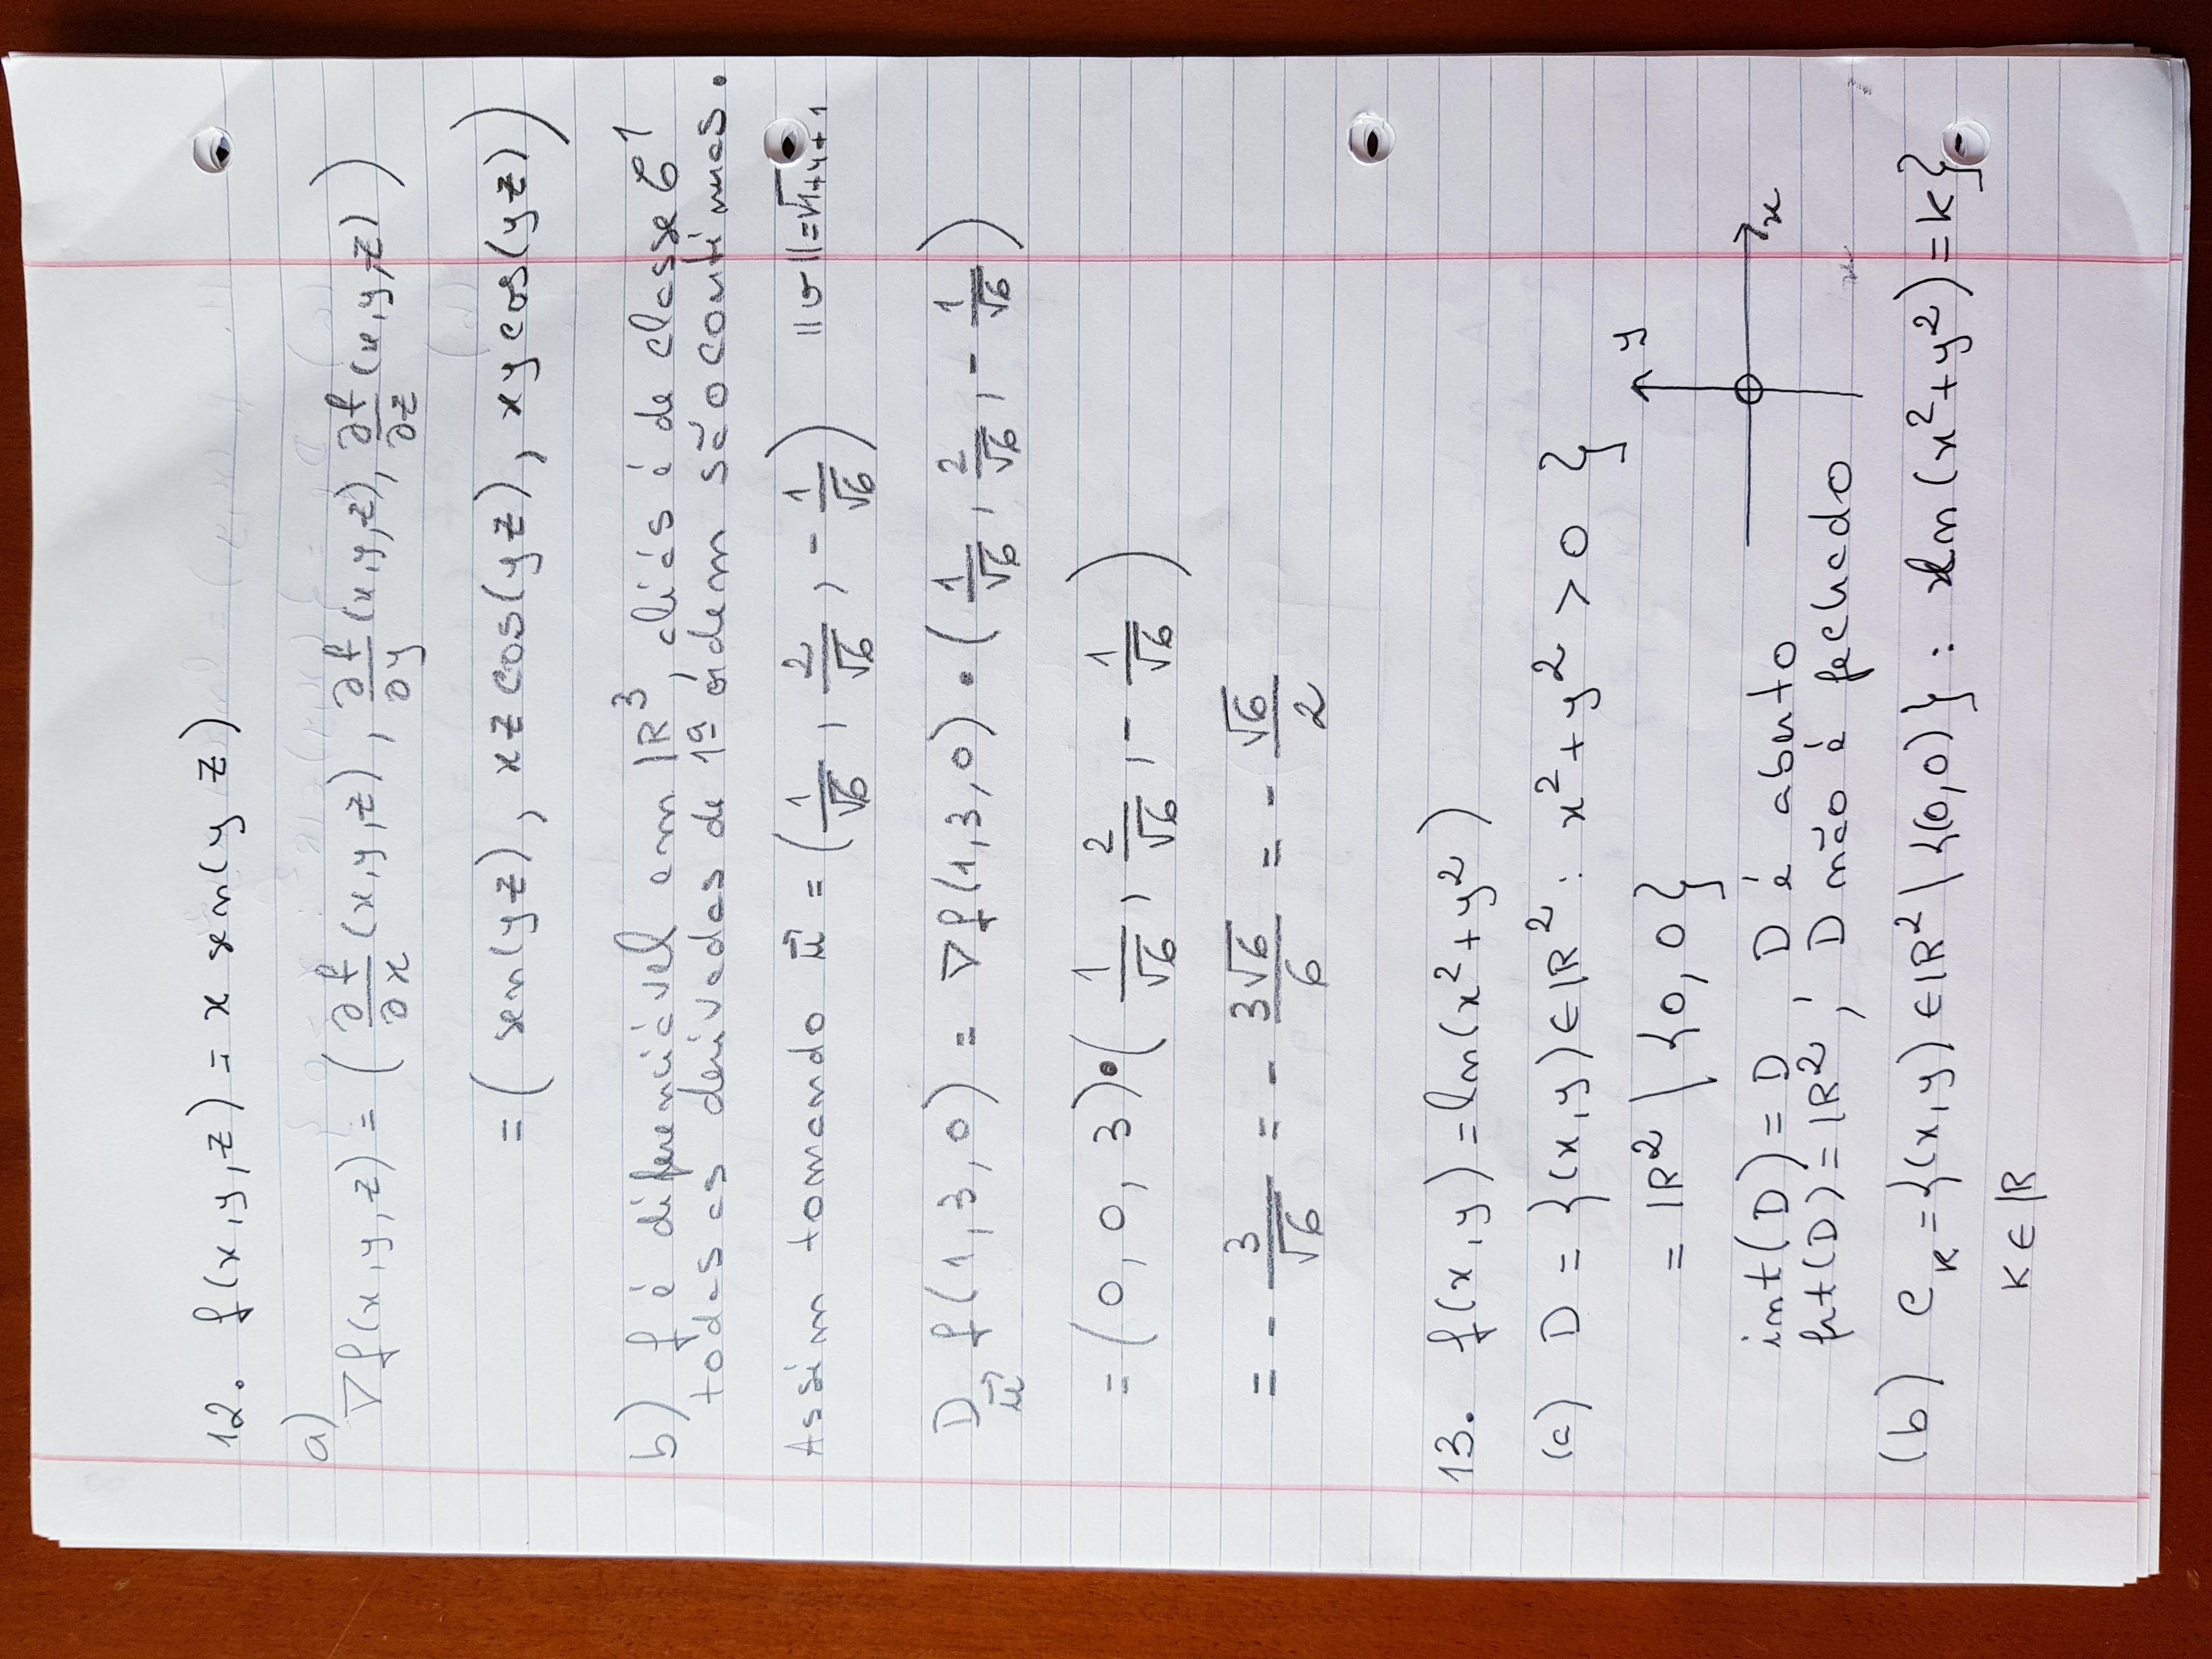 12. f(x,y,z) = x sen(y z)
a)
∇f(x,y,z) = ( ∂f/∂x (x,y,z), ∂f/∂y (x,y,z), ∂f/∂z (x,y,z) )
= ( sen(yz), xz cos(yz), xy cos(yz) )
b) f é diferenciável em ℝ³, aliás é de classe C¹
todas as derivadas de 1ª ordem são contínuas.
Assim tomando u⃗ = ( 1/√6, 2/√6, - 1/√6 ) ||v|| = √1+4+1
D_u⃗ f(1,3,0) = ∇f(1,3,0) • ( 1/√6, 2/√6, - 1/√6 )
= (0, 0, 3) • ( 1/√6, 2/√6, - 1/√6 )
= - 3/√6 = - 3√6/6 = - √6/2
13. f(x,y) = ln(x²+y²)
(a) D = {(x,y) ∈ ℝ² : x²+y² > 0 }
= ℝ² \ {0,0}
y
x
int(D) = D , D é aberto
frt(D) = ℝ² ; D não é fechado
(b) C_K = {(x,y) ∈ ℝ² \ {(0,0)} : ln(x²+y²) = K}
K ∈ ℝ